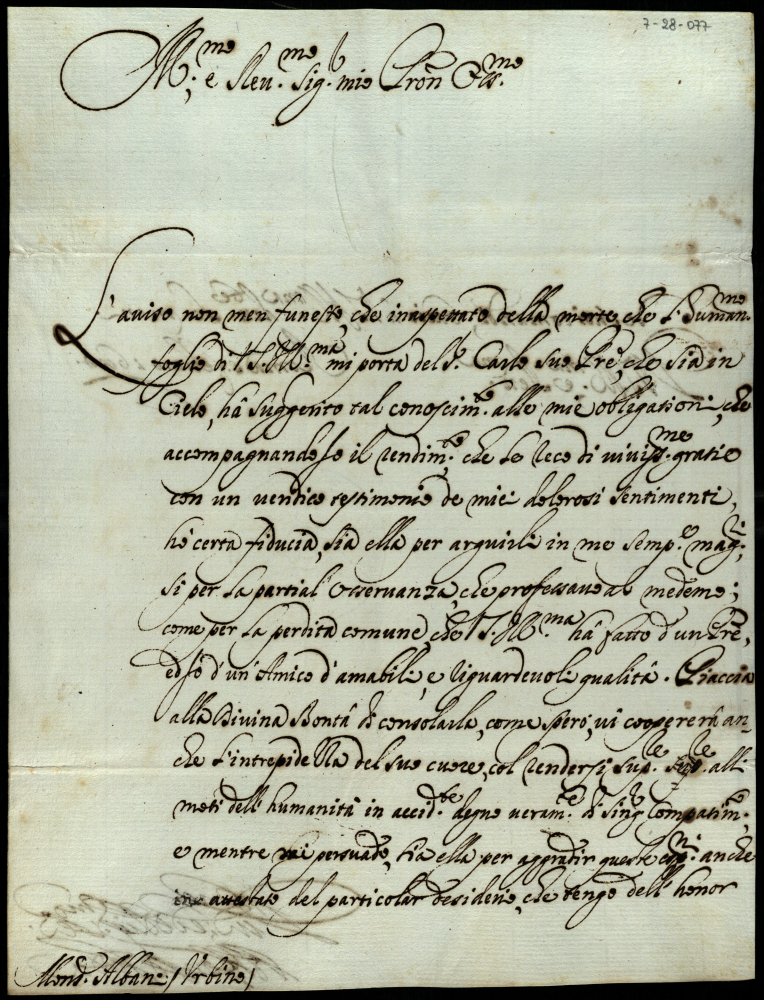 7-28-077
Ill.mo e Reu.mo Sig.r mio Pron Oss.mo
L'auiso non men funesto, che inaspettato della morte, che l'humaniss.mo
foglio di V.S. Ill.ma mi porta del S.r Carlo suo Prẽ, che sia in
Cielo, hà suggerito tal conoscim.to alle mie obligationi, che
accompagnandosi il rendim.to, che le reco di viuiss.me gratie
con un ueridico testimonio de miei dolorosi sentimenti,
hò certa fiducia, sia ella per arguirli in me semp.e mag.ri
si per la partial osseruanza, che professauo al medemo;
come per la perdita comune, che V.S. Ill.ma hà fatto d'un Prẽ,
ed io d'un Amico d'amabili, e riguardeuoli qualità. Piaccia
alla Diuina Bontà di consolarla, come spero, ui coopererà an-
che l'intrepidezza del suo cuore, col rendersi sup.le alli
moti dell'humanità in accid.te degno ueram.te di sing.r Compatim.to,
e mentre mi persuado, sia ella per aggradir queste esp.ni anche
in attestato del particolar desiderio, che tengo dell'honor
Mons.r Albani (Vrbino)